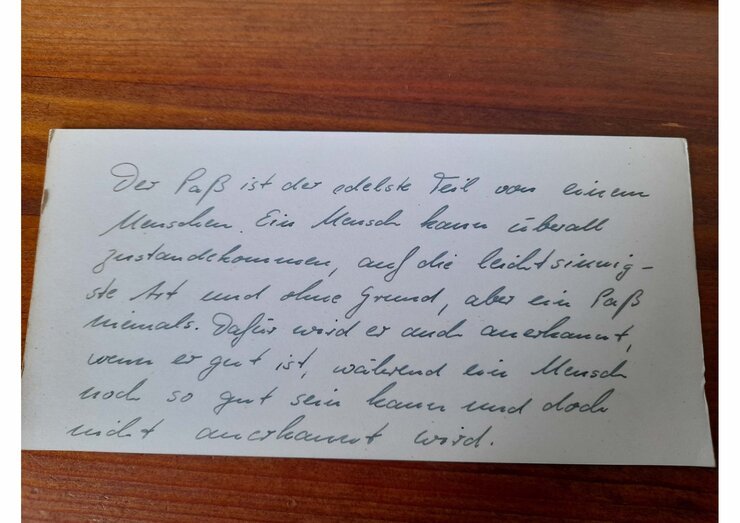 Der Paß ist der edelste Teil von einem
Menschen. Ein Mensch kann überall
zustandekommen, auf die leichtsinnig-
ste Art und ohne Grund, aber ein Paß
niemals. Dafür wird er auch anerkannt,
wenn er gut ist, während ein Mensch
noch so gut sein kann und doch
nicht anerkannt wird.